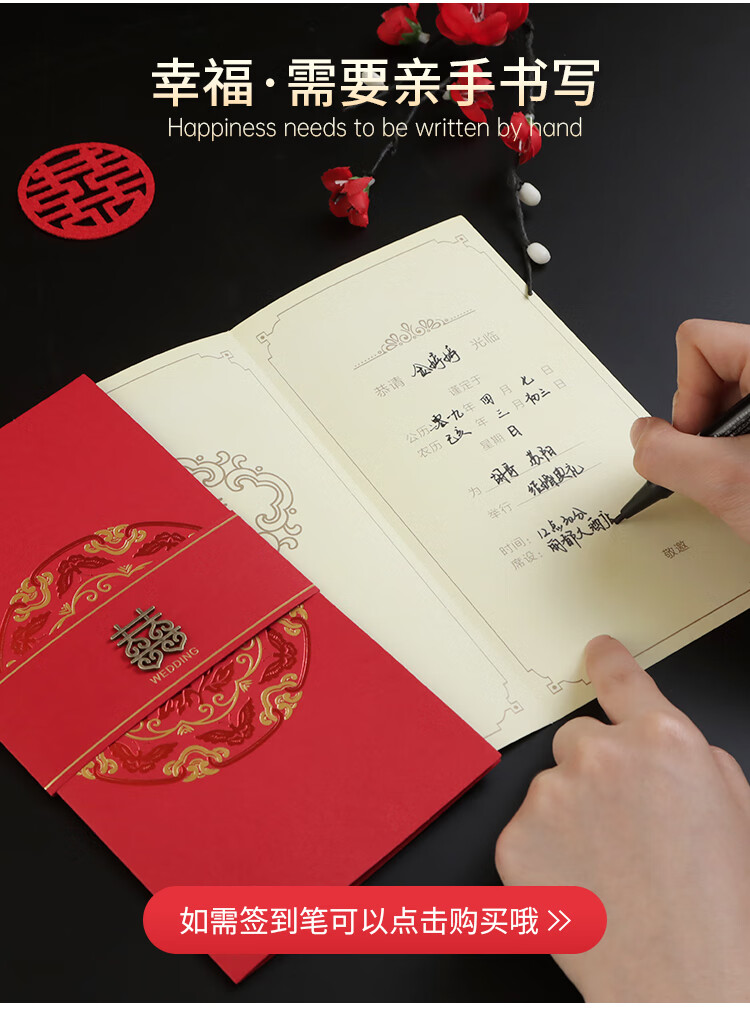 幸福·需要亲手书写
Happiness needs to be written by hand
恭请 金婷婷 光临
谨定于
公历 二零一九 年 四 月 七 日
农历 己亥 年 三 月 初三 日
星期 日
为 胡哥 苏阳
举行 结婚典礼
时间：12点30分
席设：丽都大酒店
敬邀
WEDDING
如需签到笔可以点击购买哦 >>